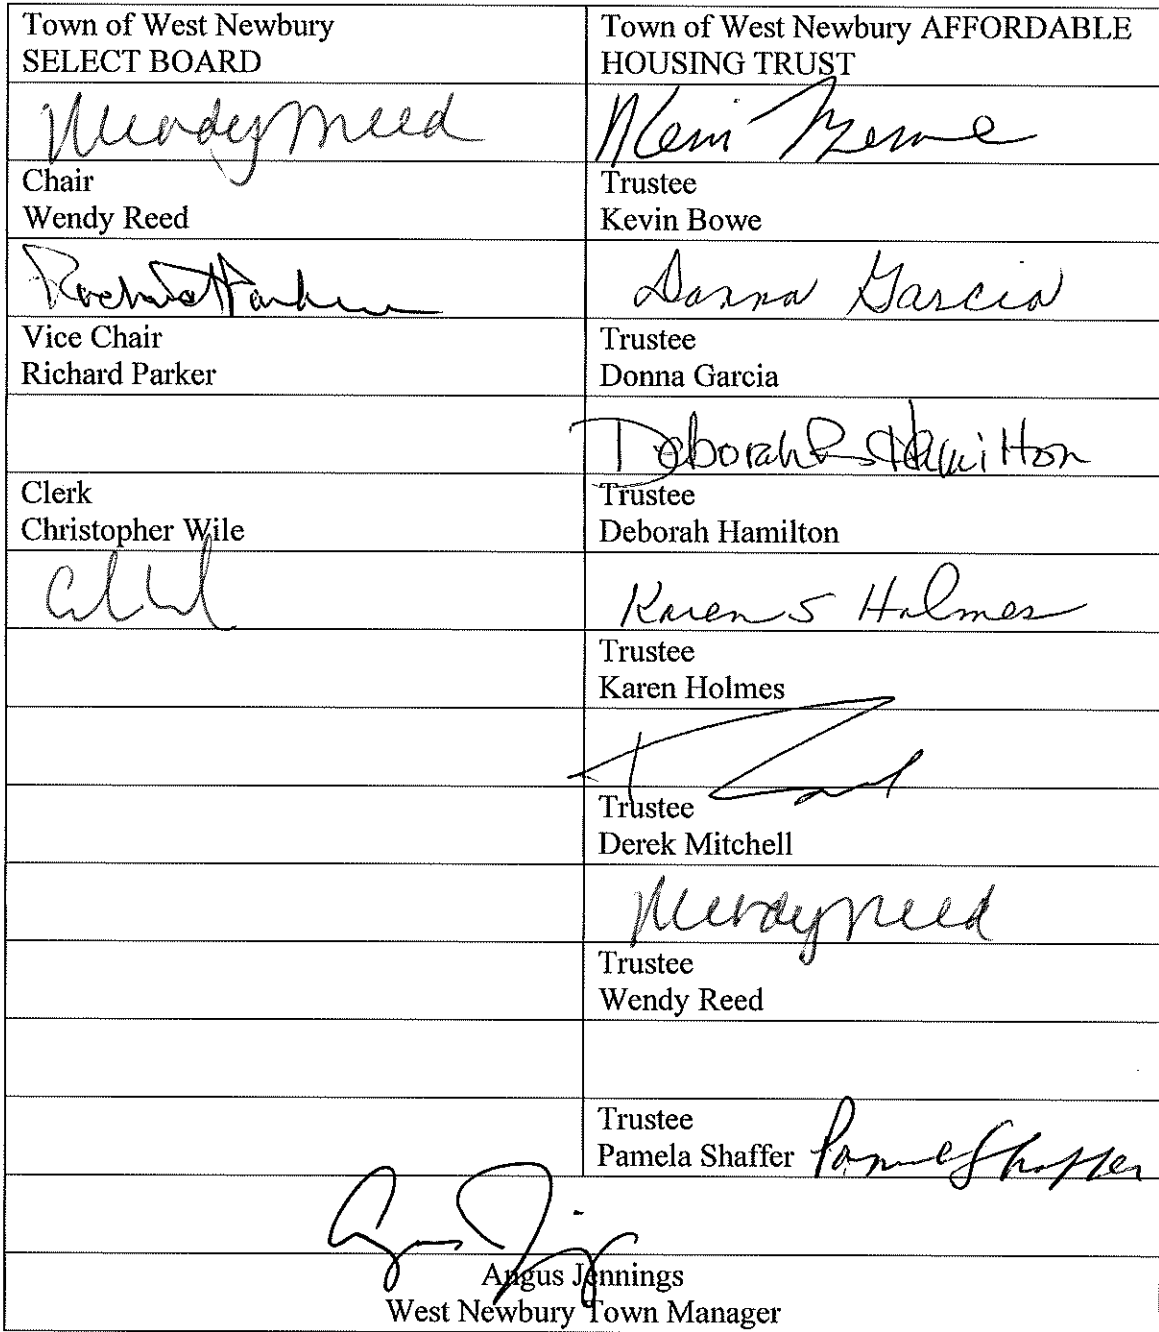 Town of West Newbury
SELECT BOARD
Town of West Newbury AFFORDABLE
HOUSING TRUST
Wendy Reed
Chair
Wendy Reed
Trustee
Kevin Bowe
Richard Parker
Donna Garcia
Vice Chair
Richard Parker
Trustee
Donna Garcia
Deborah R Hamilton
Clerk
Christopher Wile
Trustee
Deborah Hamilton
Karen S Holmes
Trustee
Karen Holmes
Trustee
Derek Mitchell
Wendy Reed
Trustee
Wendy Reed
Trustee
Pamela Shaffer Pamela Shaffer
Angus Jennings
West Newbury Town Manager